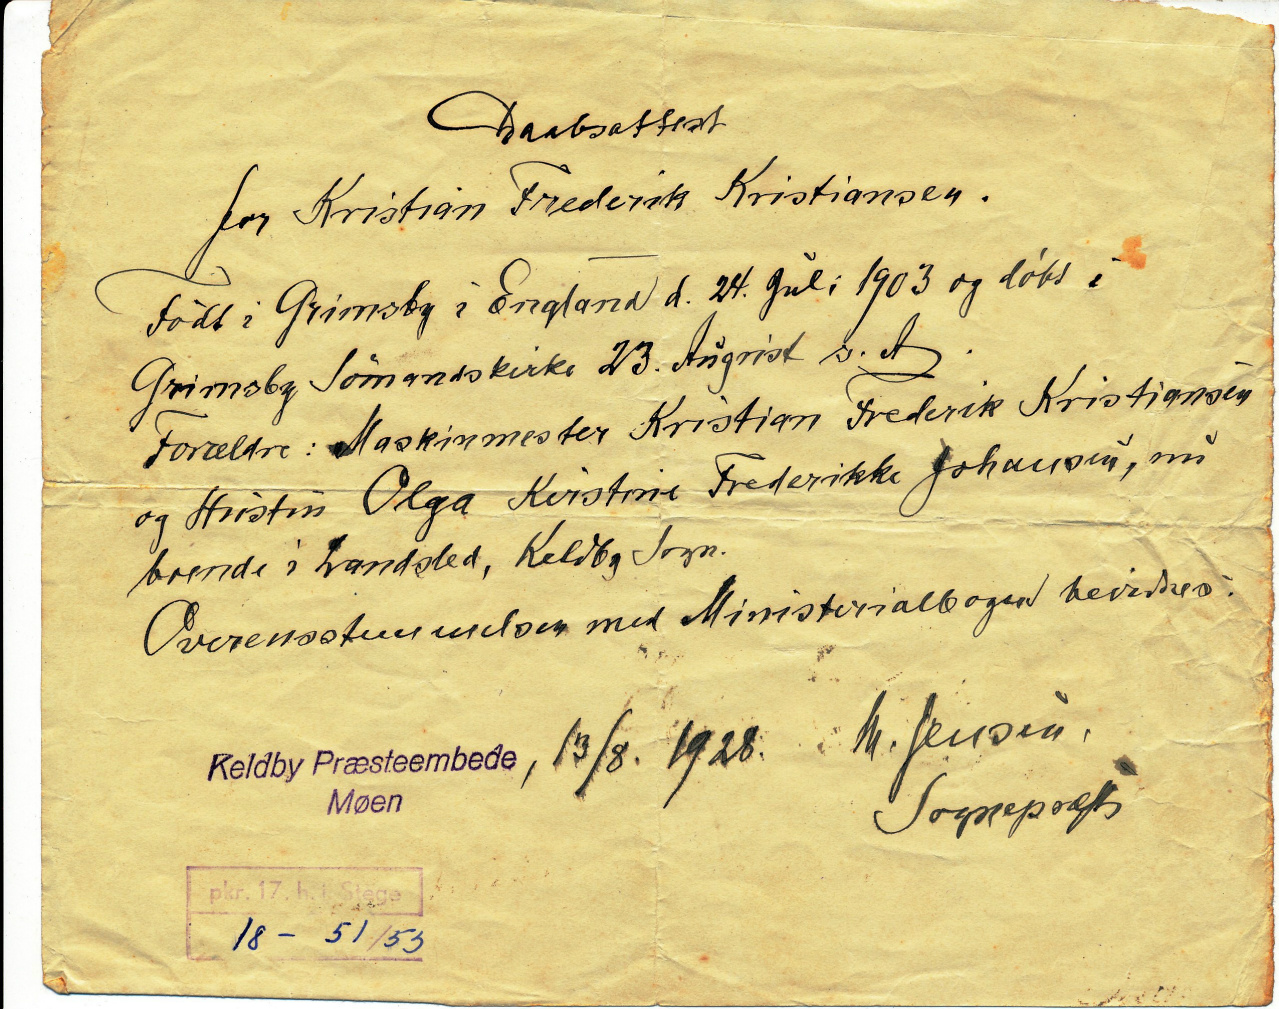 Daabsattest
for Kristian Frederik Kristiansen.
Født i Grimsby i England d. 24. Juli 1903 og døbt i
Grimsby Sømandskirke 23. August s. A.
Forældre: Maskinmester Kristian Frederik Kristiansen
og Hustru Olga Kirstine Frederikke Johansen, nu
boende i Landsled, Keldby Sogn.
Overensstemmelsen med Ministerialbogen bevidnes.
Keldby Præsteembede, 13/8. 1928. M. Jensen.
Møen
Sognepræst
pkr. 17. h. i Stege
18 - 51/53